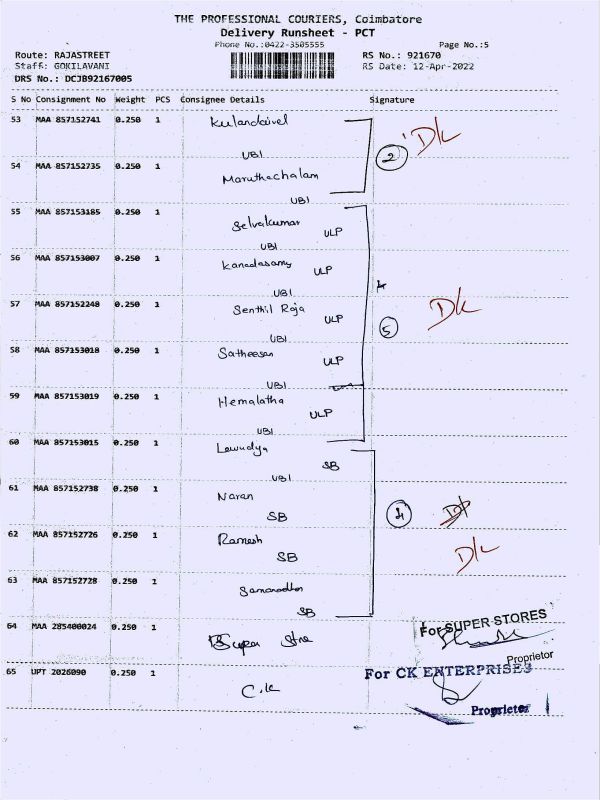 THE PROFESSIONAL COURIERS, Coimbatore
Delivery Runsheet - PCT
Phone No.:0422-3505555
Page No.:5
Route: RAJASTREET
RS No.: 921670
Staff: GOKILAVANI
RS Date: 12-Apr-2022
DRS No.: DCJB92167005
S No Consignment No Weight PCS Consignee Details Signature
53 MAA 857152741 0.250 1 Kulandaivel
UBI
2 Dk
54 MAA 857152735 0.250 1 Maruthachalam
UBI
55 MAA 857153185 0.250 1 Selvakumar ULP
UBI
56 MAA 857153007 0.250 1 Kanadasamy ULP
UBI
57 MAA 857152248 0.250 1 Senthil Raja ULP
UBI
5 Dk
58 MAA 857153018 0.250 1 Satheesan ULP
UBI
59 MAA 857153019 0.250 1 Hemalatha ULP
UBI
60 MAA 857153015 0.250 1 SB
UBI
61 MAA 857152738 0.250 1 Naran
SB
4
62 MAA 857152726 0.250 1 Ramesh
SB
Dk
63 MAA 857152728 0.250 1
SB
64 MAA 285400024 0.250 1 Super Store
For SUPER STORES
Proprietor
65 UPT 2026090 0.250 1 C.K
For CK ENTERPRISES
Proprietor